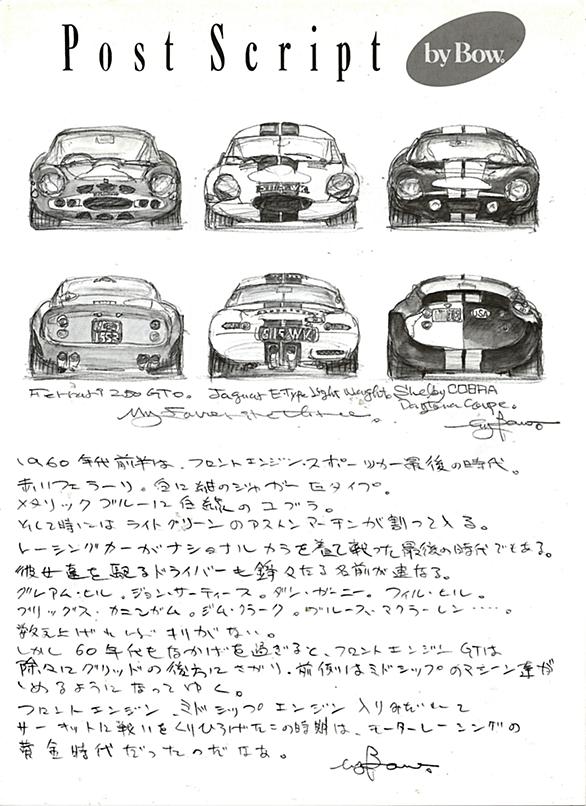 Post Script by Bow.
Ferrari 250 GTO. Jaguar E Type Light Weight. Shelby COBRA
Daytona Coupe.
My Favorite three. by Bow.
1960年代前半は、フロントエンジン・スポーツカー最後の時代。
赤いフェラーリ。白に紺のジャガーEタイプ。
メタリックブルーに白線のコブラ。
そして時にはライトグリーンのアストンマーチンが割って入る。
レーシングカーがナショナルカラーを着て戦った最後の時代でもある。
彼女達を駆るドライバーも錚々たる名前が連なる。
グレアム・ヒル。ジョン・サーティース。ダン・ガーニー。フィル・ヒル。
ブリッグス・カニンガム。ジム・クラーク。ブルース・マクラーレン‥‥。
数え上げればきりがない。
しかし60年代もなかばを過ぎると、フロントエンジンGTは
除々にグリッドの後方にさがり、前側はミドシップのマシーン達が
しめるようになってゆく。
フロントエンジン、ミドシップエンジン入りみだれて
サーキットに戦いをくりひろげたこの時期は、モーターレーシングの
黄金時代だったのだなあ。
by Bow.